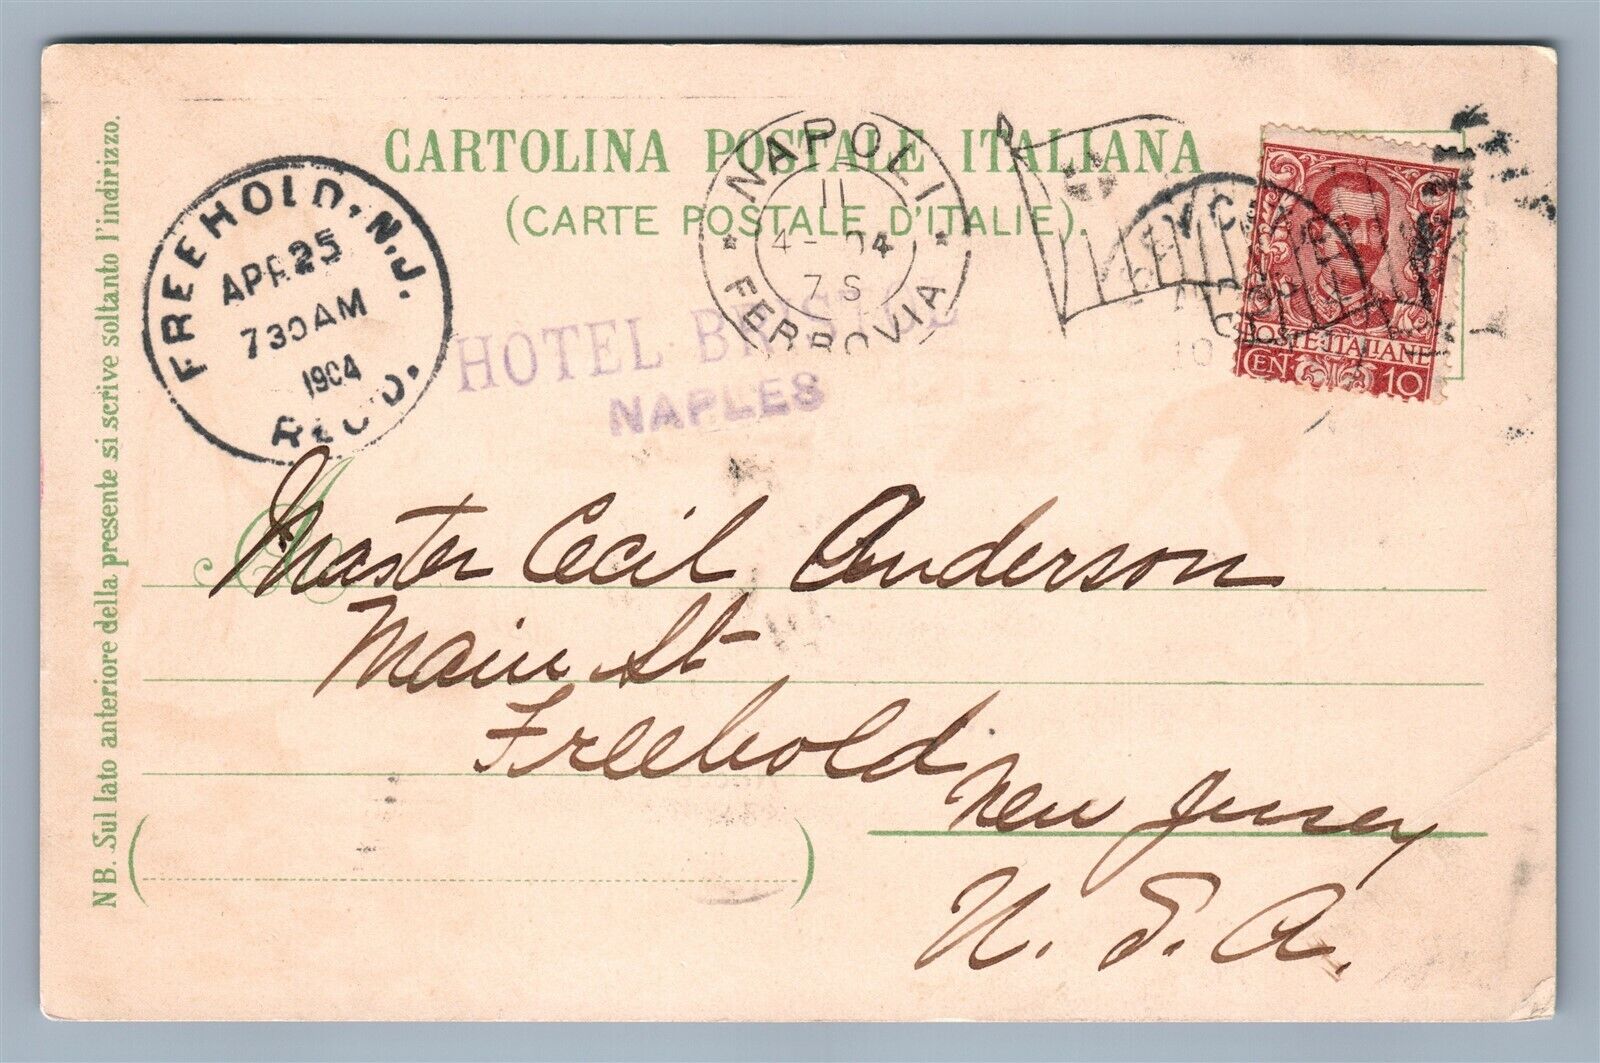 CARTOLINA POSTALE ITALIANA
(CARTE POSTALE D'ITALIE).
FREEHOLD, N.J.
APR 25
730 AM
1904
REC'D.
NAPOLI
11
4-04
7 S
* FERROVIA *
HOTEL BRISTOL
NAPLES
POSTE ITALIANE
CEN. 10
Master Cecil Anderson
Main St
Freehold
New Jersey
U.S.A.
NB. Sul lato anteriore della presente si scrive soltanto l'indirizzo.